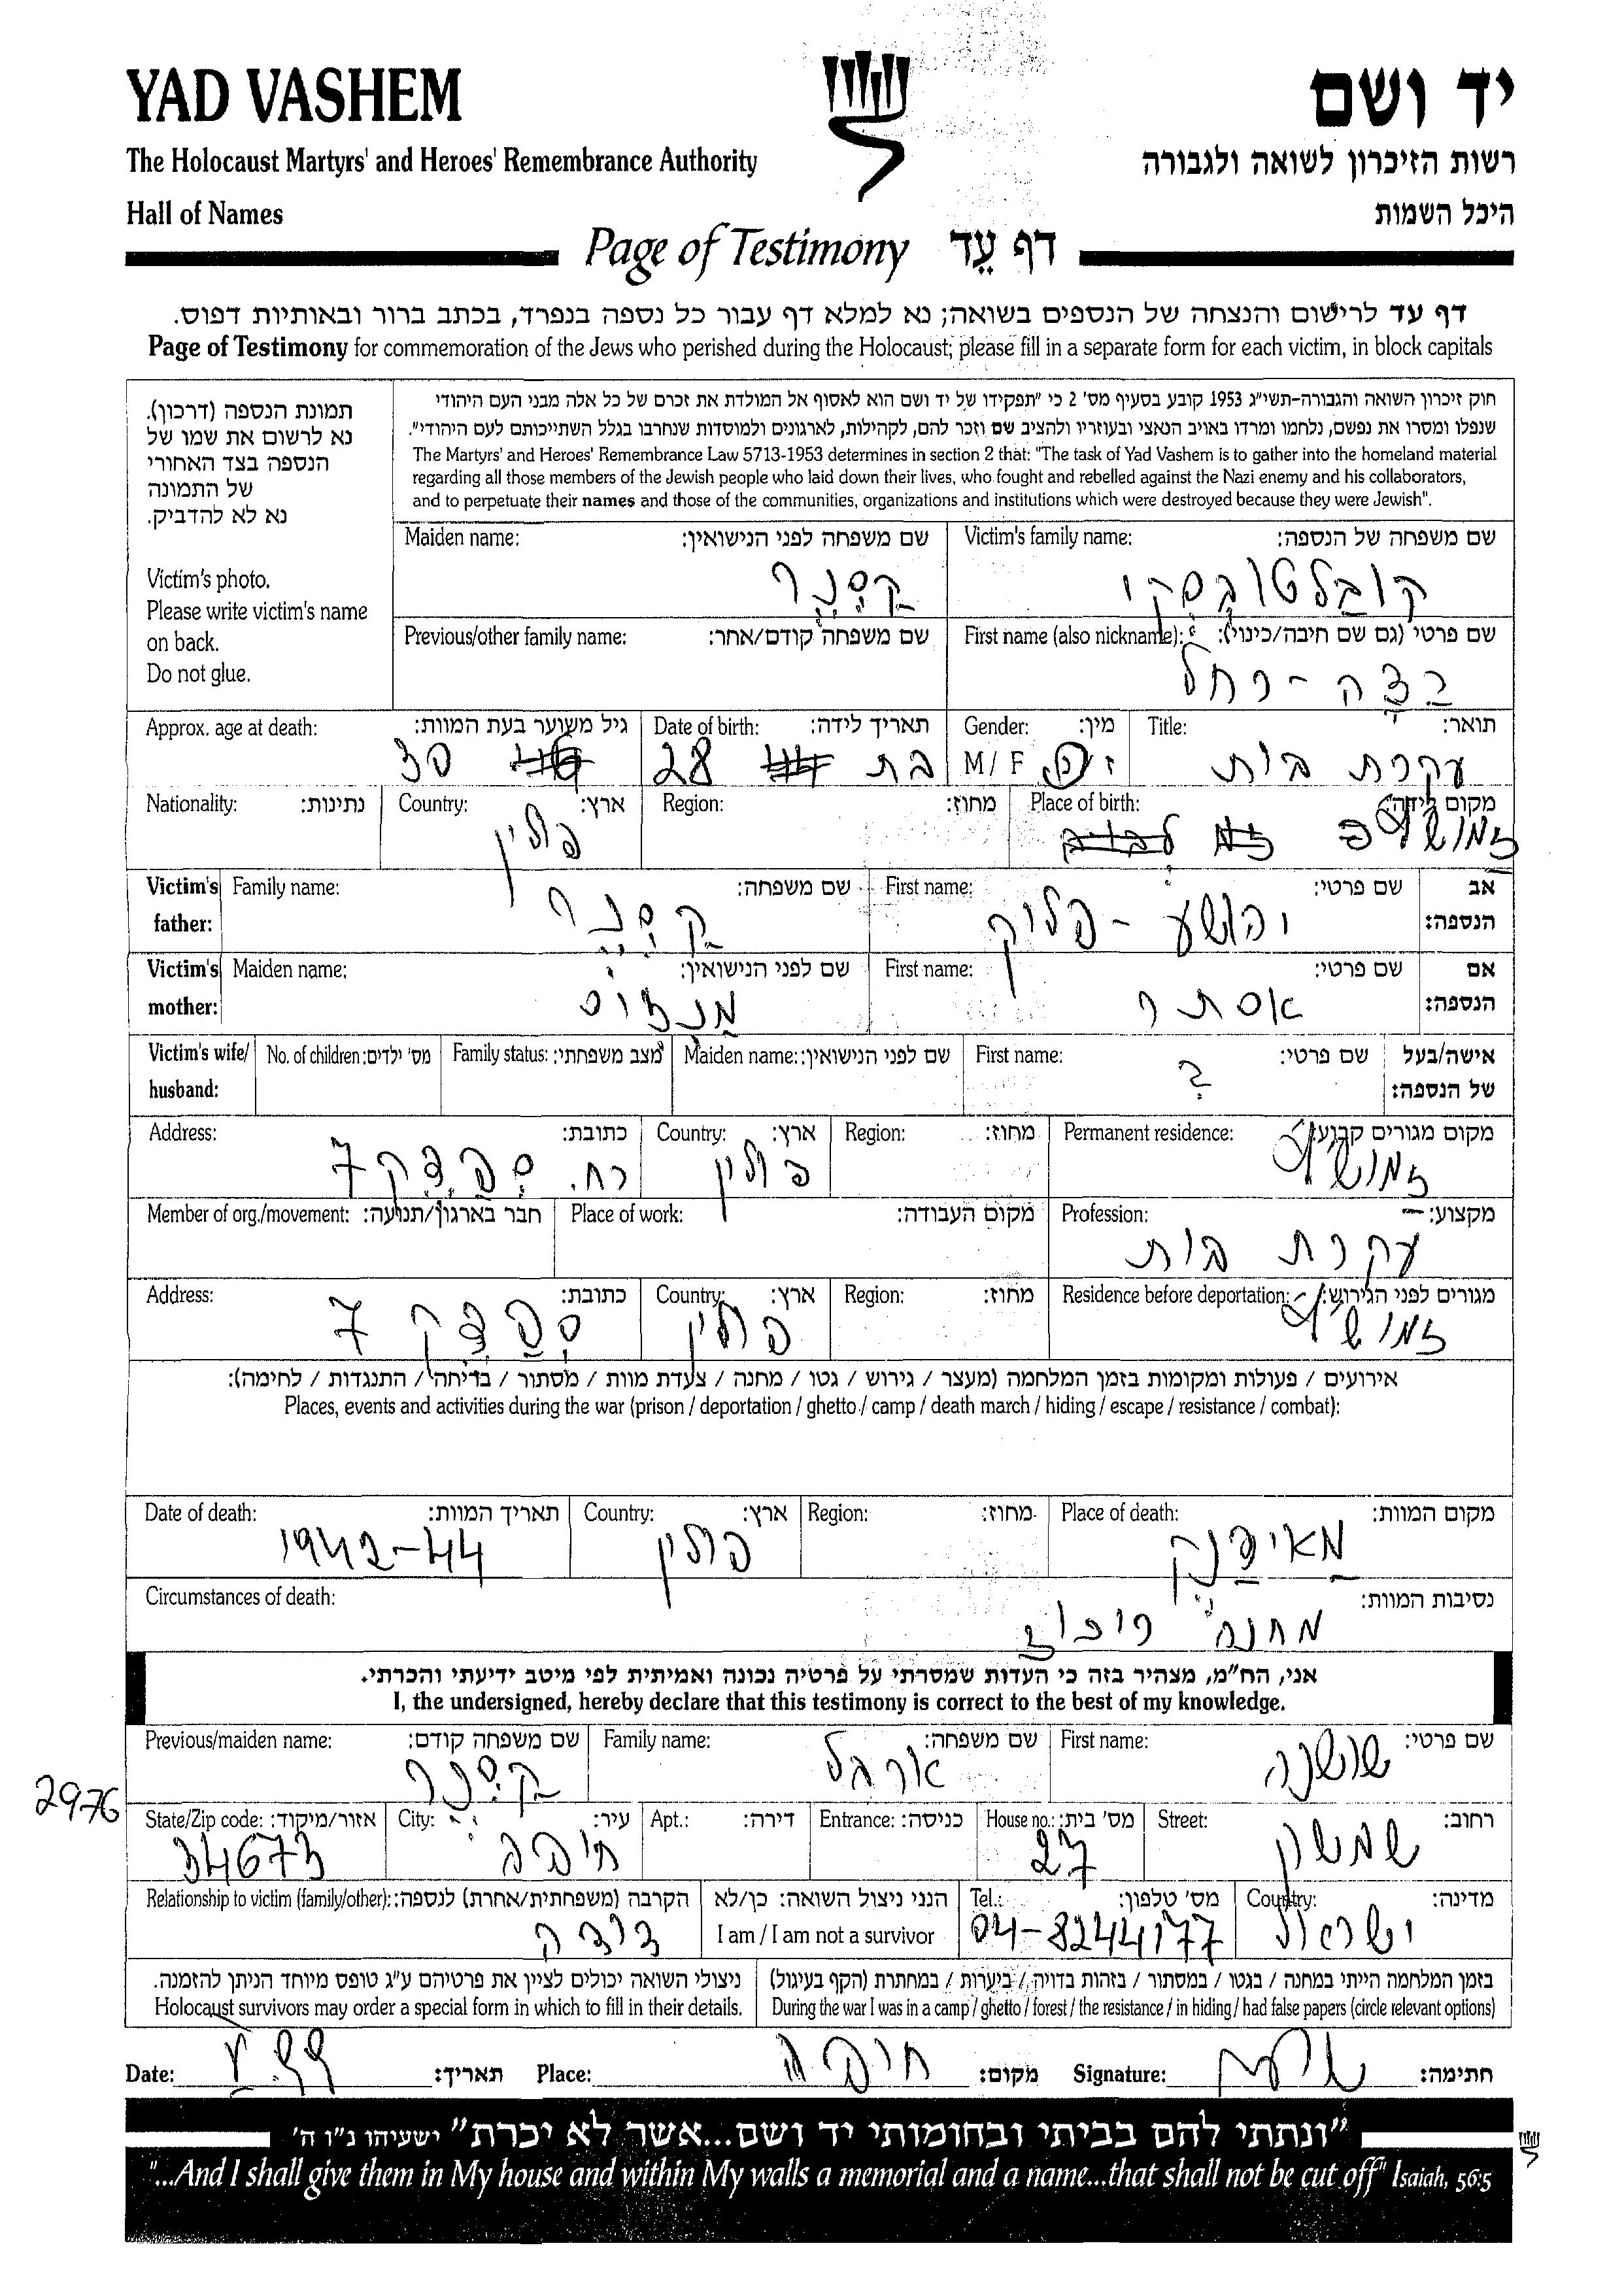 YAD VASHEM
יד ושם
The Holocaust Martyrs' and Heroes' Remembrance Authority
רשות הזיכרון לשואה ולגבורה
Hall of Names
היכל השמות
Page of Testimony דף עֵד
דף עד לרישום והנצחה של הנספים בשואה; נא למלא דף עבור כל נספה בנפרד, בכתב ברור ובאותיות דפוס.
Page of Testimony for commemoration of the Jews who perished during the Holocaust; please fill in a separate form for each victim, in block capitals
תמונת הנספה (דרכון).
נא לרשום את שמו של
הנספה בצד האחורי
של התמונה
נא לא להדביק.
Victim's photo.
Please write victim's name
on back.
Do not glue.
חוק זיכרון השואה והגבורה-תשי"ג 1953 קובע בסעיף מס' 2 כי "תפקידו של יד ושם הוא לאסוף אל המולדת את זכרם של כל אלה מבני העם היהודי
שנפלו ומסרו את נפשם, נלחמו ומרדו באויב הנאצי ובעוזריו ולהציב שם וזכר להם, לקהילות, לארגונים ולמוסדות שנחרבו בגלל השתייכותם לעם היהודי".
The Martyrs' and Heroes' Remembrance Law 5713-1953 determines in section 2 that: "The task of Yad Vashem is to gather into the homeland material
regarding all those members of the Jewish people who laid down their lives, who fought and rebelled against the Nazi enemy and his collaborators,
and to perpetuate their names and those of the communities, organizations and institutions which were destroyed because they were Jewish".
Maiden name: שם משפחה לפני הנישואין: Victim's family name: שם משפחה של הנספה:
קסנר קובלטובסקי
Previous/other family name: שם משפחה קודם/אחר: First name (also nickname): שם פרטי (גם שם חיבה/כינוי):
רחל
Approx. age at death: גיל משוער בעת המוות: Date of birth: תאריך לידה: Gender: מין: Title: תואר:
30 בת 28 M / F ז / נ עקרת בית
Nationality: נתינות: Country: ארץ: Region: מחוז: Place of birth: מקום לידה:
פולין
Victim's father: Family name: שם משפחה: First name: שם פרטי: אב הנספה:
קסנר יהושע -
Victim's mother: Maiden name: שם לפני הנישואין: First name: שם פרטי: אם הנספה:
מנזיס אסתר
Victim's wife/ husband: No. of children: מס' ילדים: Family status: מצב משפחתי: Maiden name: שם לפני הנישואין: First name: שם פרטי: אישה/בעל של הנספה:
?
Address: כתובת: Country: ארץ: Region: מחוז: Permanent residence: מקום מגורים קבוע:
רח. ספדק 7 פולין
Member of org./movement: חבר בארגון/תנועה: Place of work: מקום העבודה: Profession: מקצוע:
עקרת בית
Address: כתובת: Country: ארץ: Region: מחוז: Residence before deportation: מגורים לפני הגירוש:
ספדק 7 פולין
אירועים / פעולות ומקומות בזמן המלחמה (מעצר / גירוש / גטו / מחנה / צעדת מוות / מסתור / בריחה / התנגדות / לחימה):
Places, events and activities during the war (prison / deportation / ghetto / camp / death march / hiding / escape / resistance / combat):
Date of death: תאריך המוות: Country: ארץ: Region: מחוז: Place of death: מקום המוות:
1942-44 פולין מאידנק
Circumstances of death: נסיבות המוות:
מחנה ריכוז
אני, הח"מ, מצהיר בזה כי העדות שמסרתי על פרטיה נכונה ואמיתית לפי מיטב ידיעתי והכרתי.
I, the undersigned, hereby declare that this testimony is correct to the best of my knowledge.
Previous/maiden name: שם משפחה קודם: Family name: שם משפחה: First name: שם פרטי:
קסנר ארגל שושנה
2976
State/Zip code: אזור/מיקוד: City: עיר: Apt.: דירה: Entrance: כניסה: House no.: מס' בית: Street: רחוב:
34673 חיפה 27 שמשון
Relationship to victim (family/other): הקרבה (משפחתית/אחרת) לנספה: הנני ניצול השואה: כן/לא Tel.: מס' טלפון: Country: מדינה:
דודה I am / I am not a survivor 04-8244177 ישראל
ניצולי השואה יכולים לציין את פרטיהם ע"ג טופס מיוחד הניתן להזמנה. בזמן המלחמה הייתי במחנה / בגטו / במסתור / בזהות בדויה / ביערות / במחתרת (הקף בעיגול)
Holocaust survivors may order a special form in which to fill in their details. During the war I was in a camp / ghetto / forest / the resistance / in hiding / had false papers (circle relevant options)
Date: תאריך: Place: חיפה מקום: Signature: חתימה:
"ונתתי להם בביתי ובחומותי יד ושם...אשר לא יכרת" ישעיהו נ"ו ה'
"...And I shall give them in My house and within My walls a memorial and a name...that shall not be cut off" Isaiah, 56:5